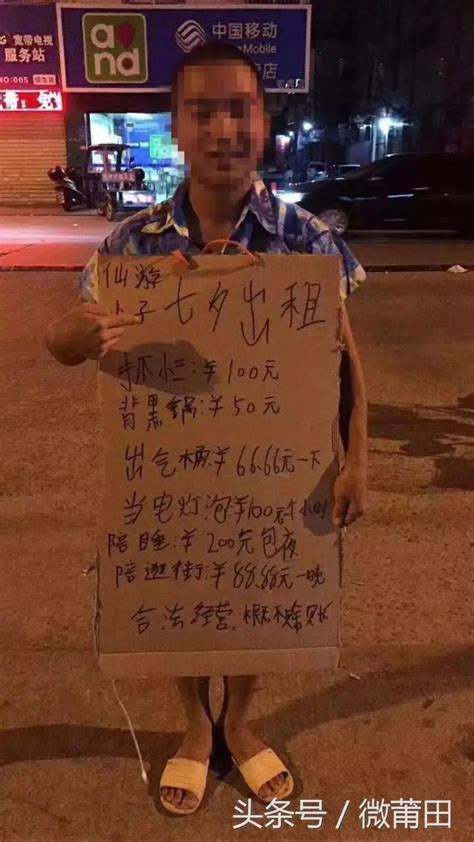 宽带电视
服务站
and
中国移动
Mobile
店
NO:005
仙游
七夕出租
抓小三:¥100元
背黑锅:¥50元
出气桶:¥66.66元一下
当电灯泡¥100元1个小时
陪睡:¥200元包夜
陪逛街:¥88.88元一晚
合法经营,概不赊账
头条号 / 微莆田